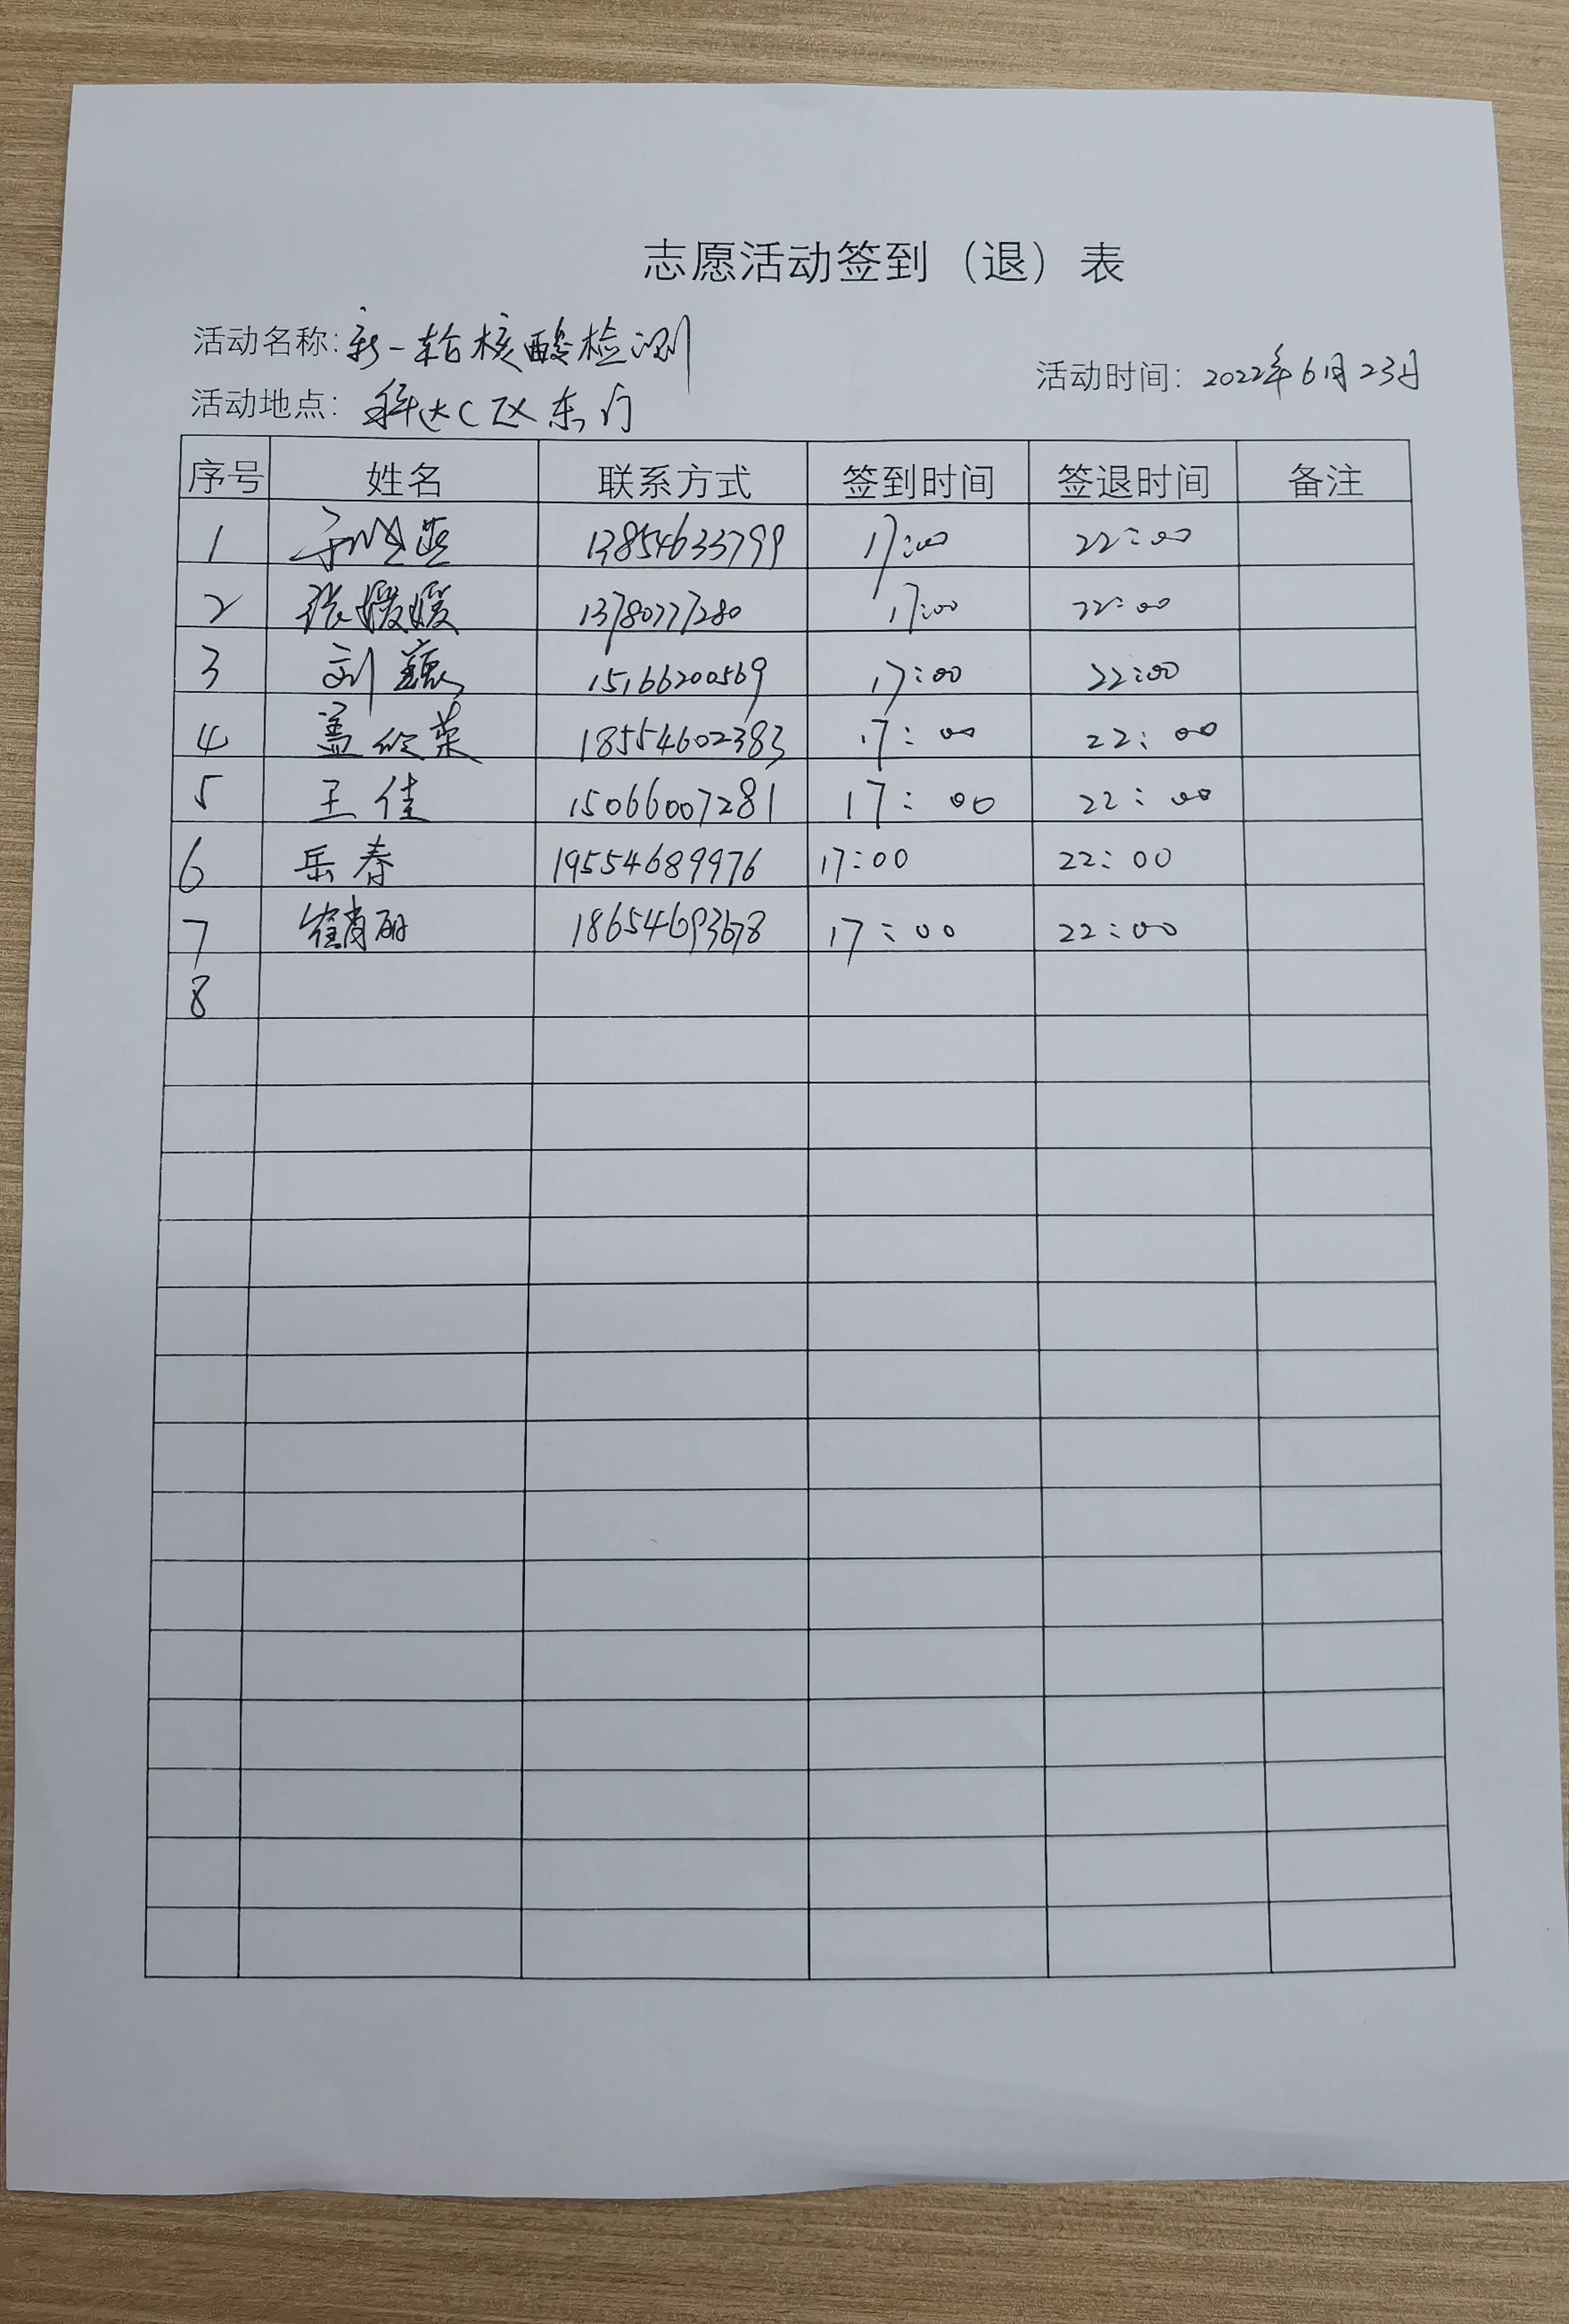 志愿活动签到（退）表
活动名称：新一轮核酸检测
活动时间：2022年6月23日
活动地点：科达C区东门
序号 姓名 联系方式 签到时间 签退时间 备注
1 13854633799 17:00 22:00
2 张媛媛 13780777280 17:00 22:00
3 刘巍 15166200569 17:00 22:00
4 盖欣荣 18554602383 17:00 22:00
5 王佳 15066007281 17:00 22:00
6 岳春 19554689976 17:00 22:00
7 崔肖丽 18654693678 17:00 22:00
8